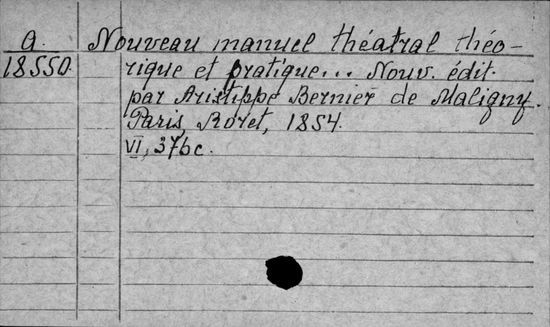 a.
18550.
Nouveau manuel théatral théo-
rique et pratique... Nouv. édit.
par Aristippe Bernier de Maligny.
Paris, Roret, 1854.
VI, 376c.